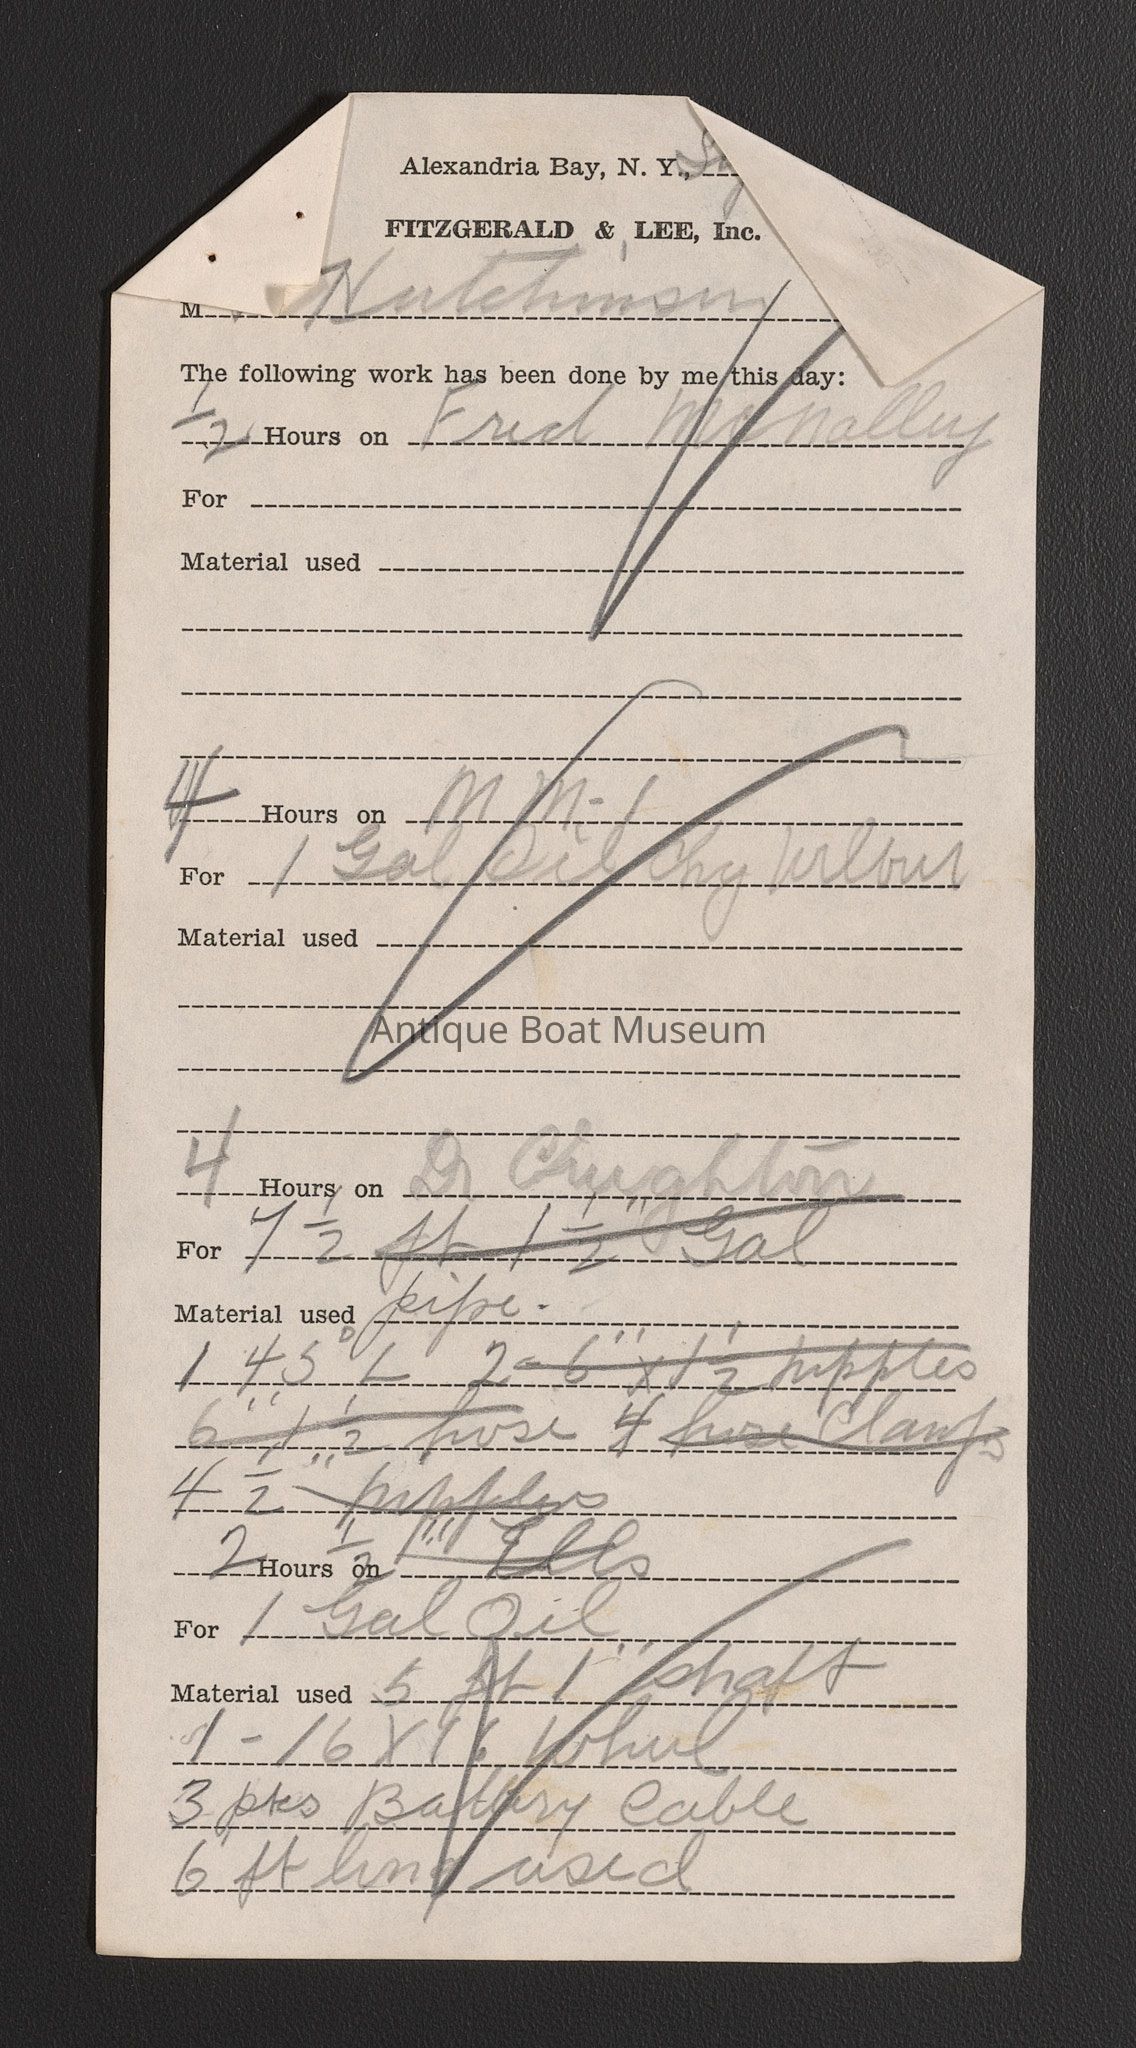 Alexandria Bay, N. Y.,
FITZGERALD & LEE, Inc.
M Hutchinson
The following work has been done by me this day:
1/2 Hours on Fred McNalley
For
Material used
4 Hours on M M-1
For 1 Gal Oil Chg Wilbur
Material used
Antique Boat Museum
4 Hours on Dr Crughton
For 7 1/2 ft 1 1/2" Gal
Material used pipe.
1 45° L 2-6" x 1 1/2 nipples
6" 1 1/2" hose 4 hose Clamps
4 1/2" nipples
2 1/2" Ells
Hours on
For 1 Gal Oil
Material used 5 ft 1" shaft
1-16 X 16 Whul
3 pks Battery Cable
6 ft used